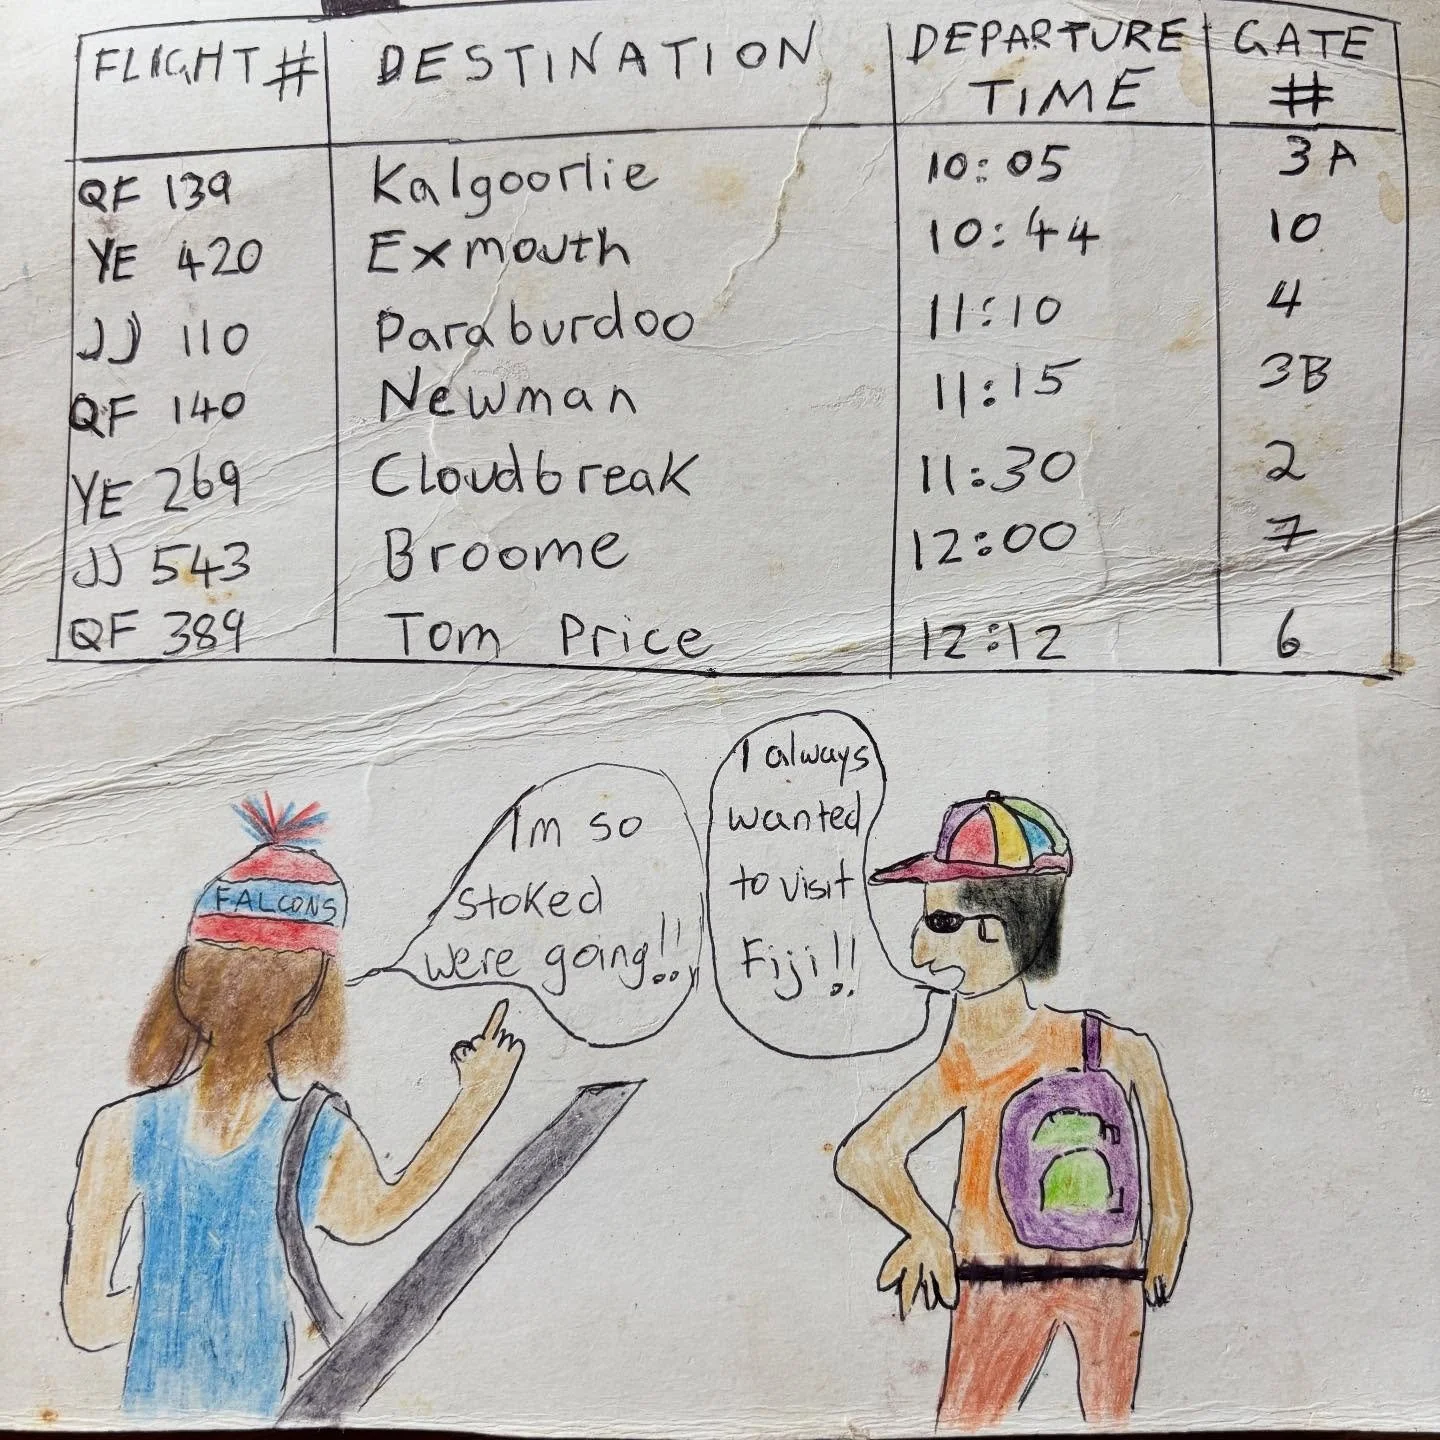 FLIGHT # DESTINATION DEPARTURE TIME GATE #
QF 139 Kalgoorlie 10:05 3A
YE 420 Exmouth 10:44 10
JJ 110 Paraburdoo 11:10 4
QF 140 Newman 11:15 3B
YE 269 Cloudbreak 11:30 2
JJ 543 Broome 12:00 7
QF 389 Tom Price 12:12 6
FALCONS
I'm so
stoked
were going!!
I always
wanted
to visit
Fiji!!